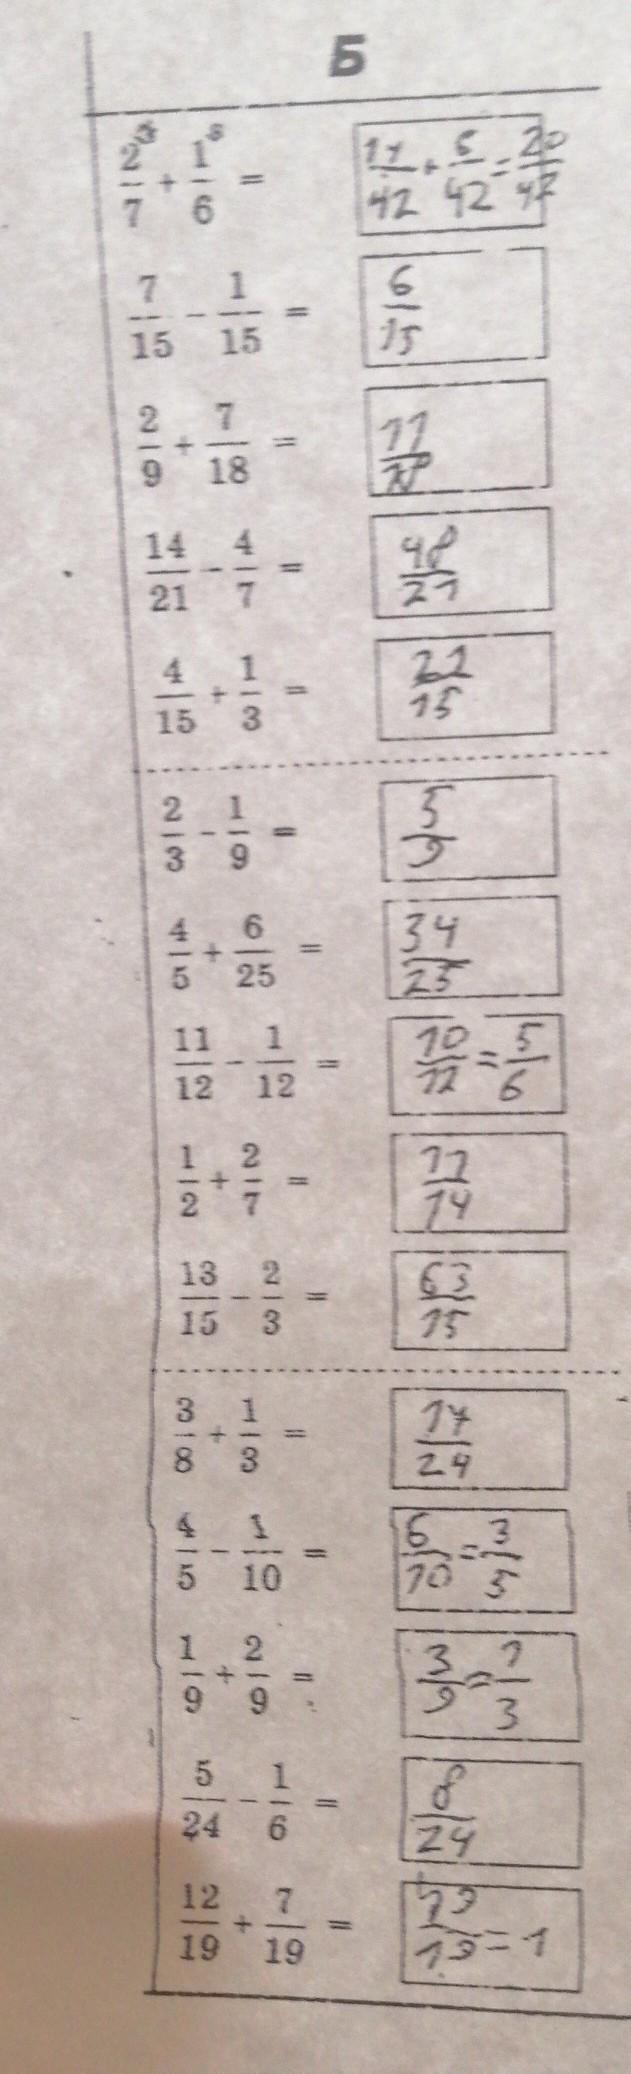 Б
2/7 + 1/6 = 14/42 + 6/42 = 20/42
7/15 - 1/15 = 6/15
2/9 + 7/18 = 11/18
14/21 - 4/7 = 48/21
4/15 + 1/3 = 22/15
2/3 - 1/9 = 5/9
4/5 + 6/25 = 34/25
11/12 - 1/12 = 10/12 = 5/6
1/2 + 2/7 = 11/14
13/15 - 2/3 = 63/15
3/8 + 1/3 = 17/24
4/5 - 1/10 = 6/10 = 3/5
1/9 + 2/9 = 3/9 = 1/3
5/24 - 1/6 = 8/24
12/19 + 7/19 = 19/19 = 1